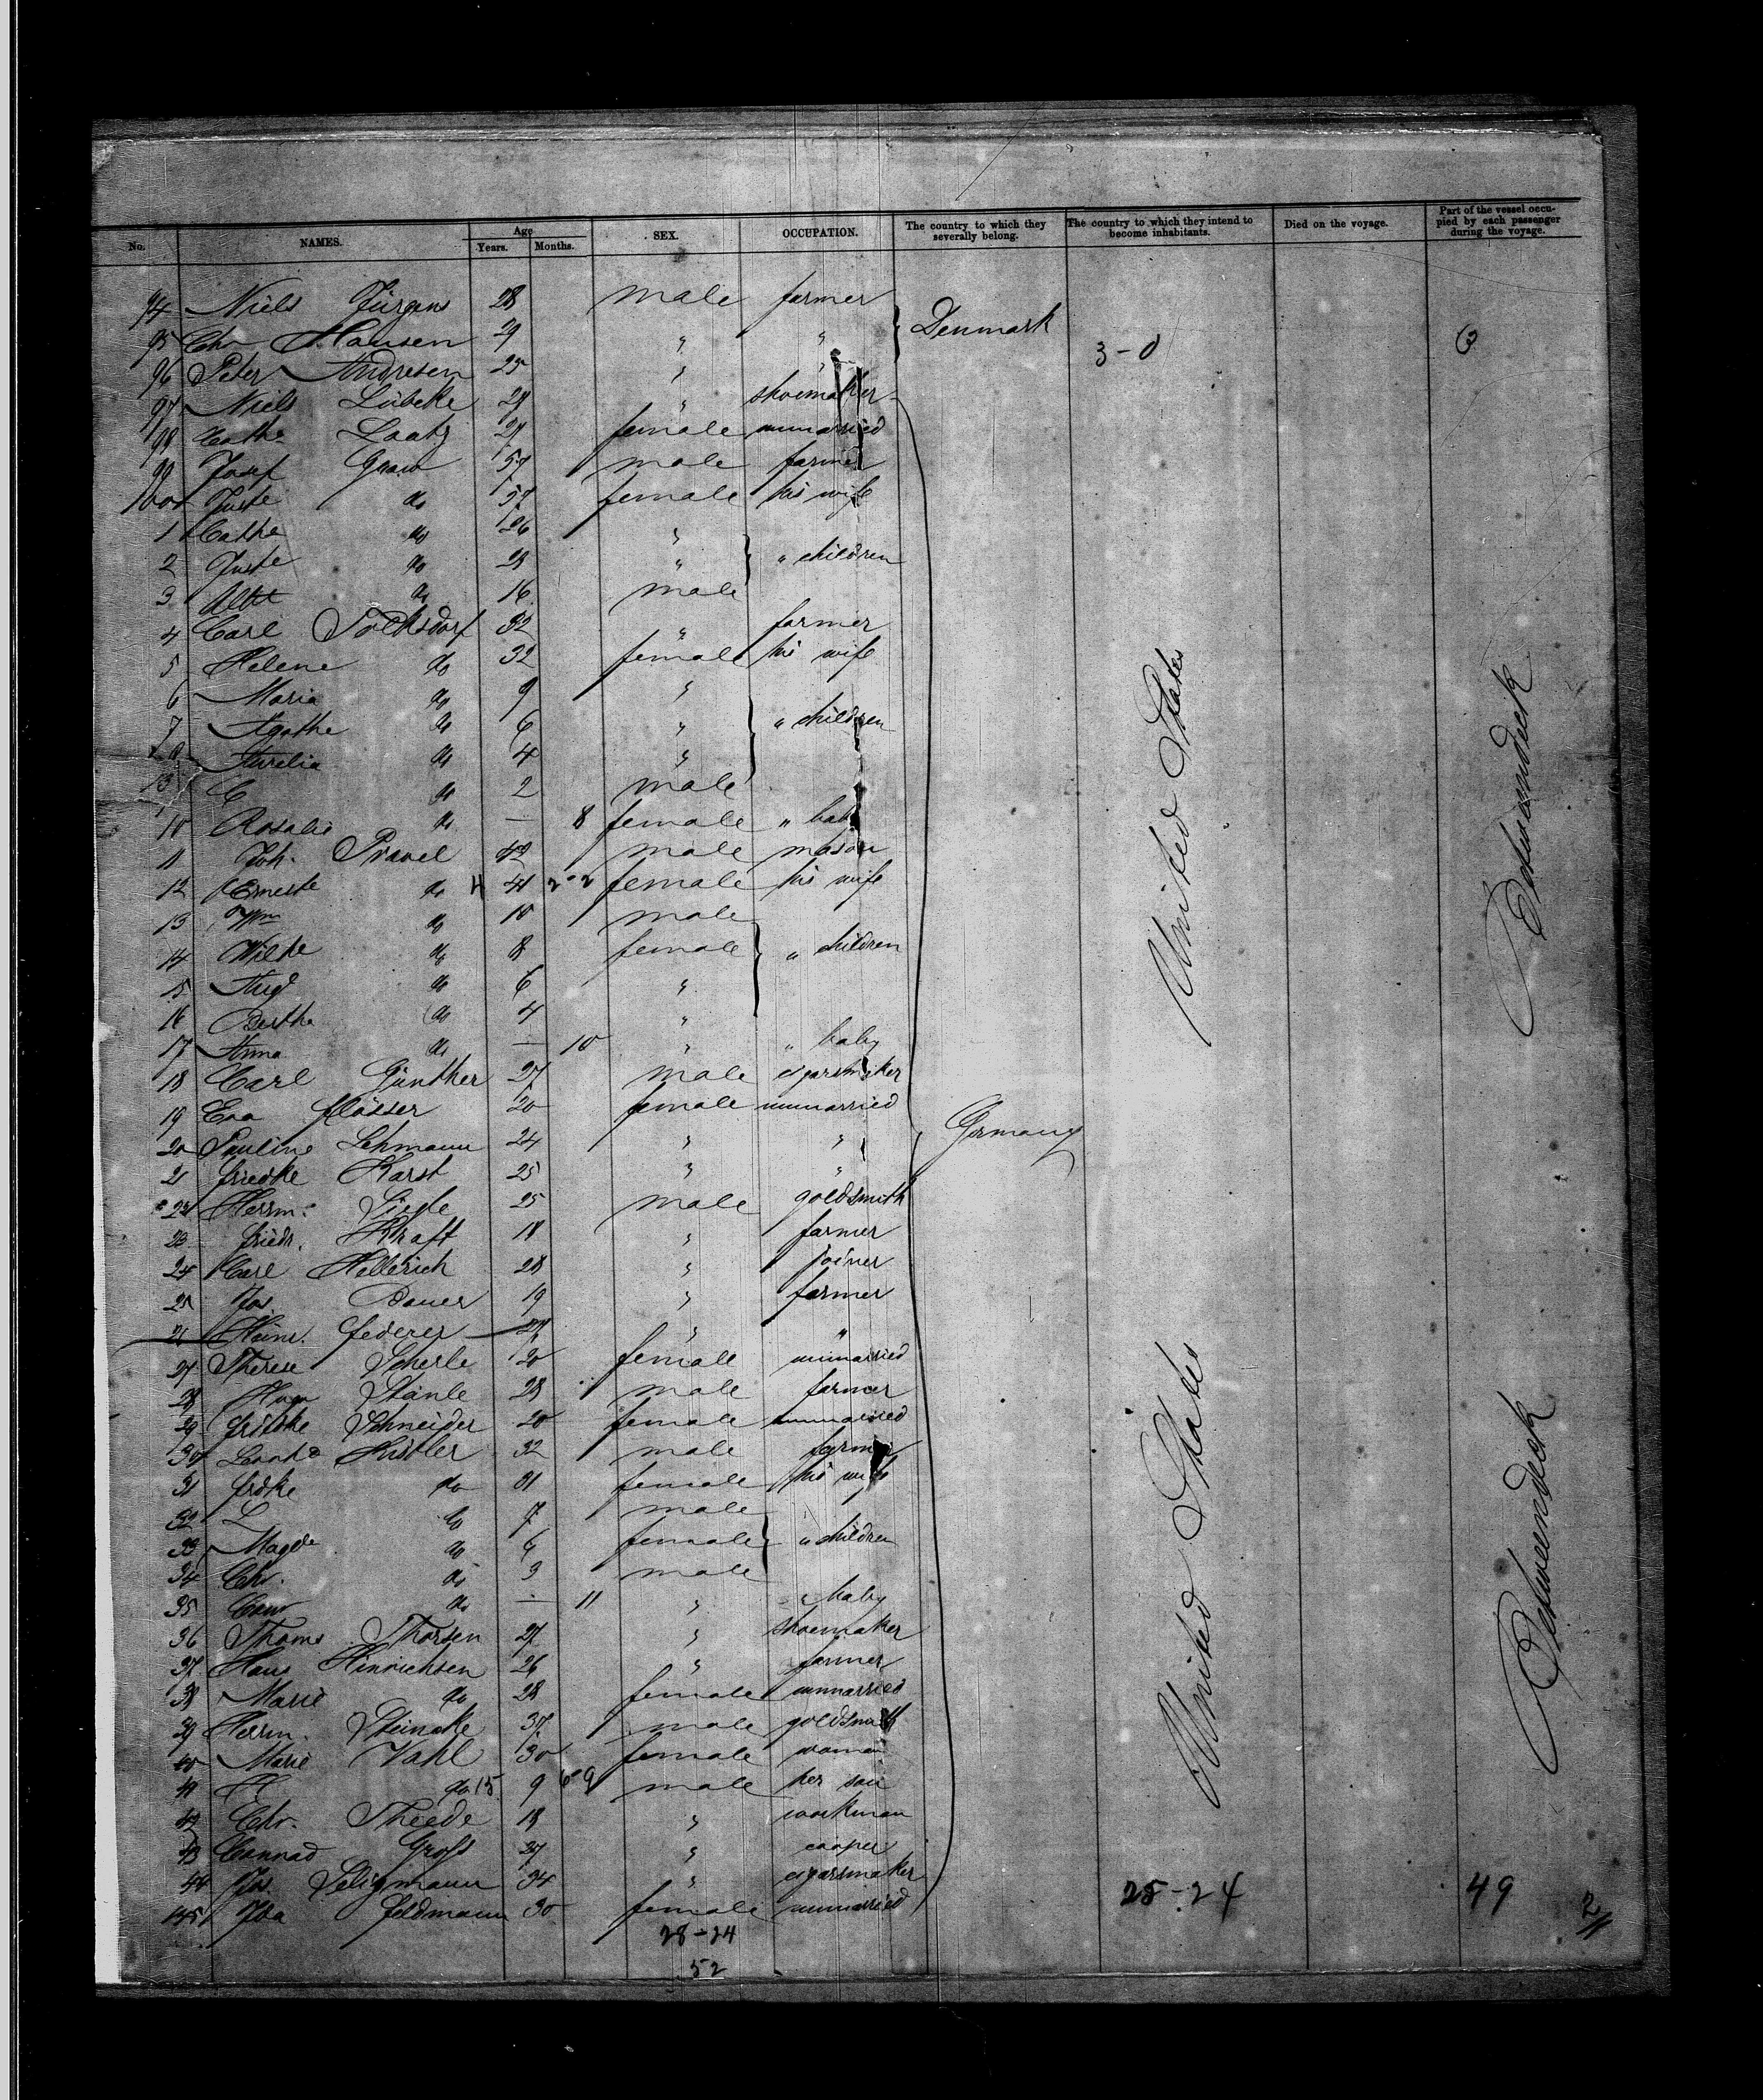 No. NAMES. Age Years. Months. SEX. OCCUPATION. The country to which they severally belong. The country to which they intend to become inhabitants. Died on the voyage. Part of the vessel occupied by each passenger during the voyage.
94 Niels Jürgens 28 male farmer
95 Chr Hansen 29 " " Denmark 3-0 3
96 Peter Andresen 25 " "
97 Niels Lübcke 29 " shoemaker
98 Cathe Laatz 29 female unmarried
99 Josef Graw 57 male farmer
100 Juste do 57 female his wife
1 Cathe do 26 "
2 Juste do 23 " " children
3 Albt do 16 male
4 Carl Tolksdorf 32 " farmer
5 Helene do 32 female his wife
6 Maria do 9 "
7 Agathe do 6 " " children
Aurelia do 4 "
C do 2 male
10 Rosalie do — 8 female " baby
11 Joh. Pravel 42 male mason
12 Erneste do 41 2-2 female his wife
13 Wm do 10 male
14 Wilhe do 8 female " children
15 Aug do 6 "
16 Bertha do 4 "
17 Anna do — 10 " " baby
18 Carl Günther 27 male cigarsmaker
19 Eva Flösser 20 female unmarried
20 Pauline Lehmann 24 " " Germany
21 Friedke Karst 25 " "
22 Herrm. Siegle 25 male goldsmith
23 Friedr. Kraft 18 " farmer
24 Carl Hellerich 28 " joiner
25 Jos. Bauer 19 " farmer
26 Heinr. Federer " "
27 Therese Scherle 20 female unmarried
28 Hugo Stänle 28 male farmer
29 Fridke Schneider 20 female unmarried
30 Kistler 32 male farmer
31 Frdke do 31 female his wife
32 L do 7 male
33 Magde do 6 female " children
34 Chr. do 3 male
35 do — 11 " " baby
36 Thoms Thorsen 27 " shoemaker
37 Hans Hinrichsen 26 " farmer
38 Marie do 28 female unmarried
39 Herrm. Steincke 37 male goldsmith
40 Marie Vahl 30 female woman
41 H do 15 9 6-9 male her son
42 Chr. Theede 18 " workman
43 Connad Groß 27 " cooper
44 Jos. Seligmann 34 " cigarsmaker
145 Ida Feldmann 30 female unmarried
28-24
52
United States
United States
25-24
Betweendeck
Betweendeck
49
2